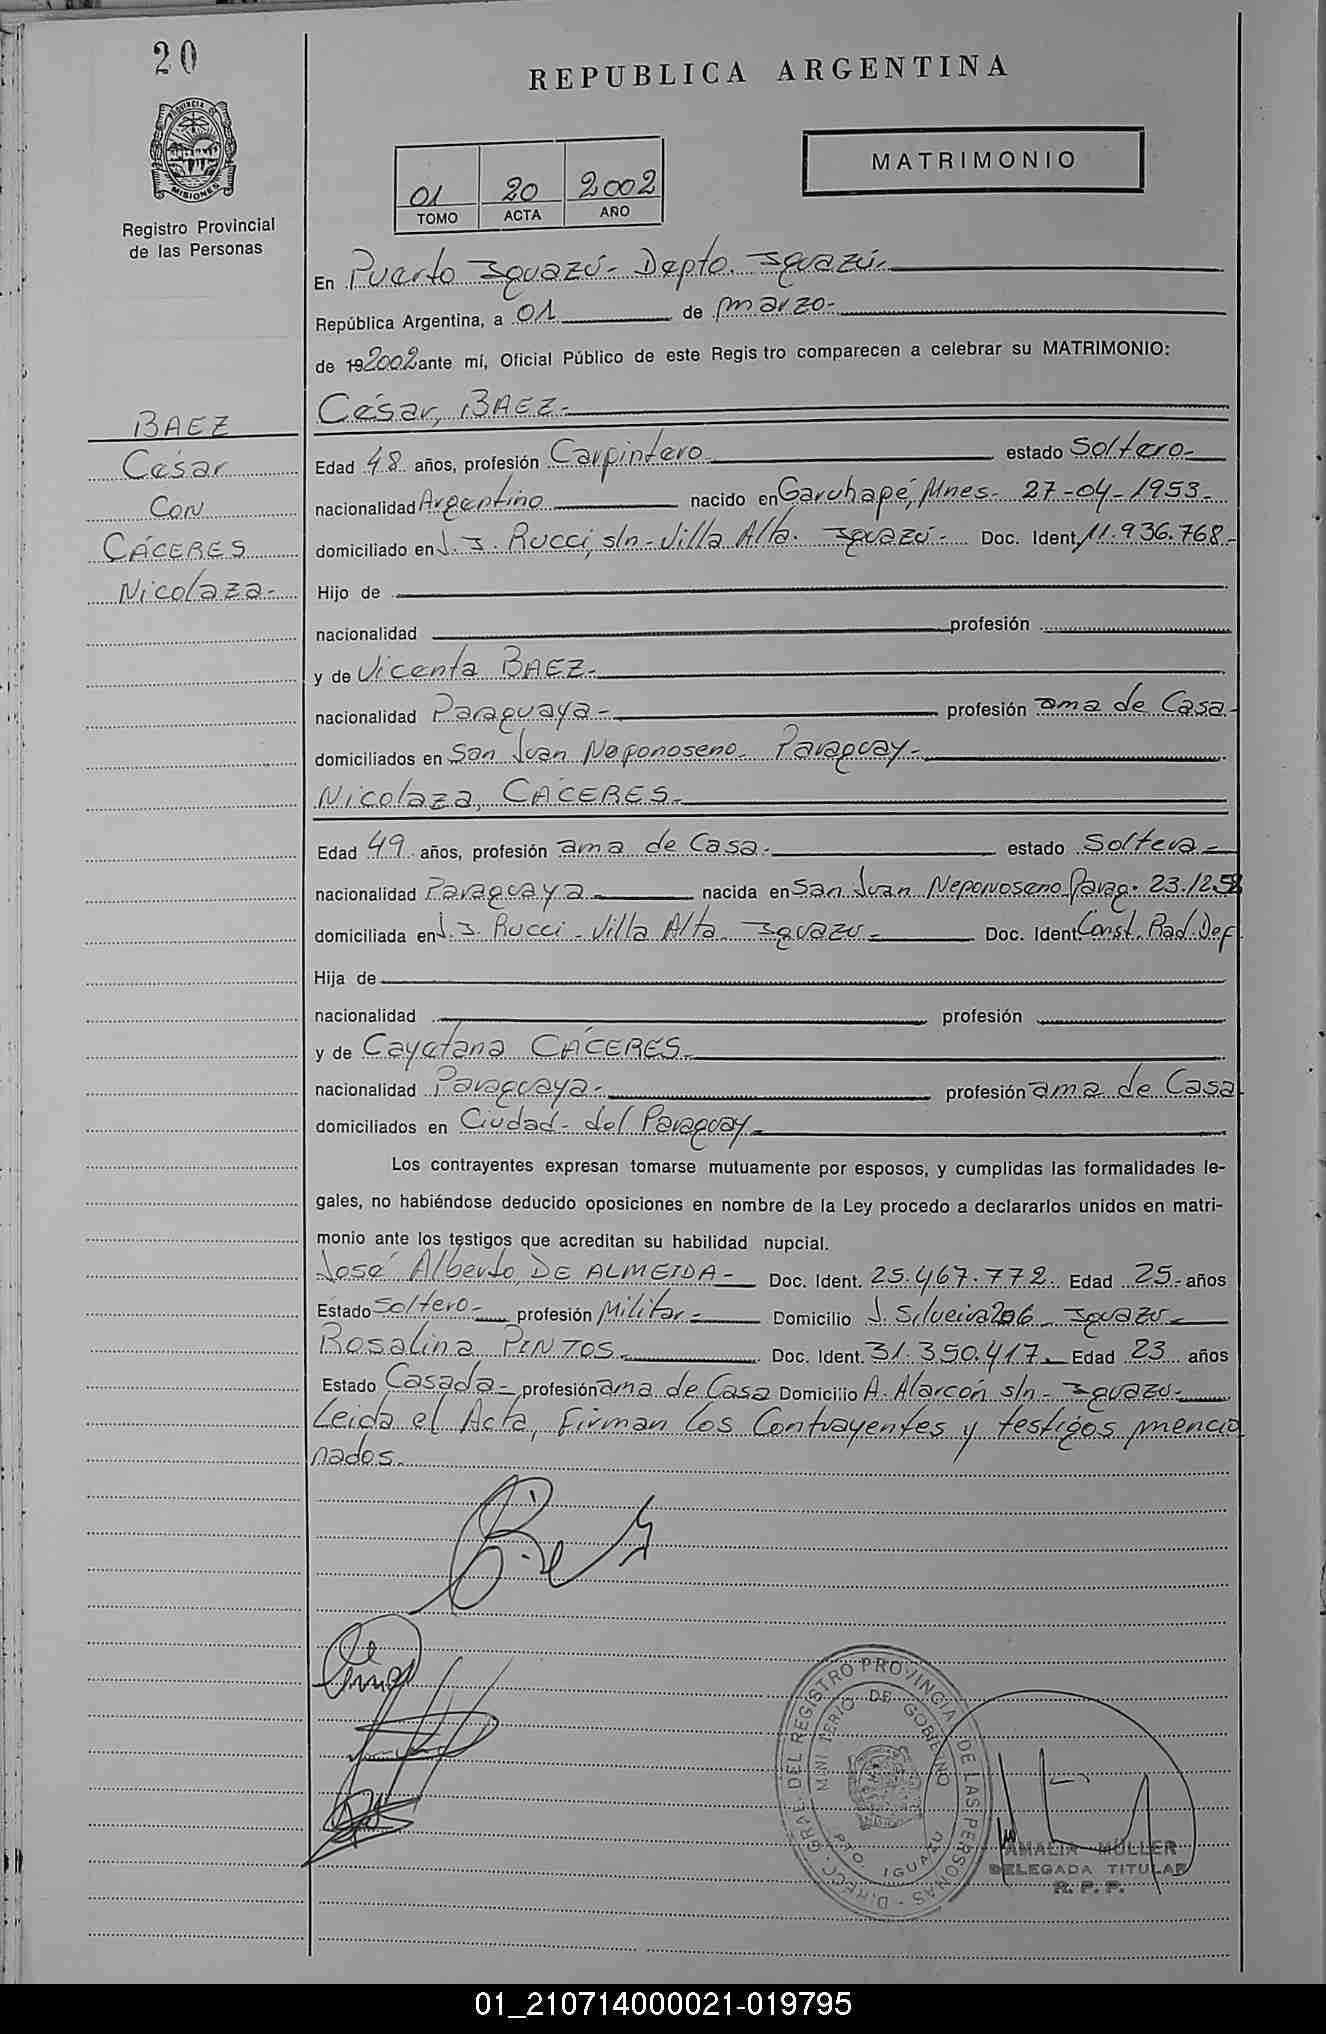 20
REPUBLICA ARGENTINA
PROVINCIA DE
MISIONES
MATRIMONIO
01 20 2002
TOMO ACTA AÑO
Registro Provincial
de las Personas
En Puerto Iguazú- Depto. Iguazú.-
República Argentina, a 01 de marzo.-
de 192002 ante mí, Oficial Público de este Regis tro comparecen a celebrar su MATRIMONIO:
BAEZ
César
Con
CÁCERES
Nicolaza.-
César, BAEZ.-
Edad 48 años, profesión Carpintero estado Soltero.-
nacionalidad Argentino nacido en Garuhapé, Mnes- 27-04-1953.-
domiciliado en J. J. Rucci, s/n- Villa Alta. Iguazú-. Doc. Ident. 11.936.768.-
Hijo de
nacionalidad profesión
y de Vicenta BAEZ.-
nacionalidad Paraguaya- profesión ama de Casa-
domiciliados en San Juan Neponoseno- Paraguay-.
Nicolaza, CÁCERES.-
Edad 49 años, profesión ama de Casa.- estado Soltera-
nacionalidad Paraguaya nacida en San Juan Neponoseno Parag. 23.12.52
domiciliada en J. J. Rucci- Villa Alta- Iguazú- Doc. Ident. Const. Rad. Def.
Hija de
nacionalidad profesión
y de Cayetana CÁCERES-
nacionalidad Paraguaya- profesión ama de Casa
domiciliados en Ciudad- del Paraguay-
Los contrayentes expresan tomarse mutuamente por esposos, y cumplidas las formalidades le-
gales, no habiéndose deducido oposiciones en nombre de la Ley procedo a declararlos unidos en matri-
monio ante los testigos que acreditan su habilidad nupcial.
José Alberto DE ALMEIDA- Doc. Ident. 25.467.772 Edad 25 años
Estado Soltero- profesión Militar- Domicilio J. Silveira 206- Iguazú-
Rosalina PINTOS- Doc. Ident. 31.350.417. Edad 23 años
Estado Casada- profesión ama de Casa Domicilio A. Alarcón s/n- Iguazú-
Leida el Acta, Firman los Contrayentes y testigos mencio
nados.-
DIREC. GRAL. DEL REGISTRO PROVINCIAL DE LAS PERSONAS
MINISTERIO DE GOBIERNO
PTO. IGUAZU
AMALIA MÜLLER
DELEGADA TITULAR
R. P. P.
01_210714000021-019795